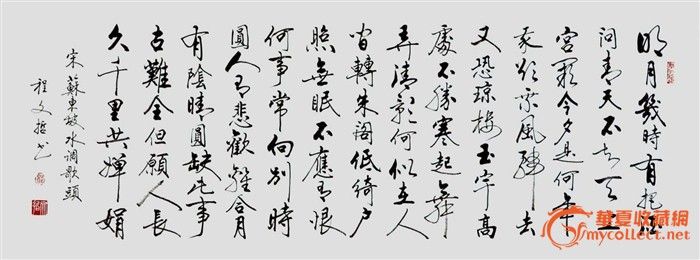 明月幾時有把酒
问青天不知天上
宫闕今夕是何年
我欲乘風歸去
又恐琼楼玉宇高
處不勝寒起舞
弄清影何似在人
间轉朱阁低绮户
照無眠不應有恨
何事常向别時
圓人有悲歡離合月
有陰晴圓缺此事
古難全但願人長
久千里共婵娟
宋蘇東坡水调歌頭
程文哲书
華夏收藏網
mycollect.net